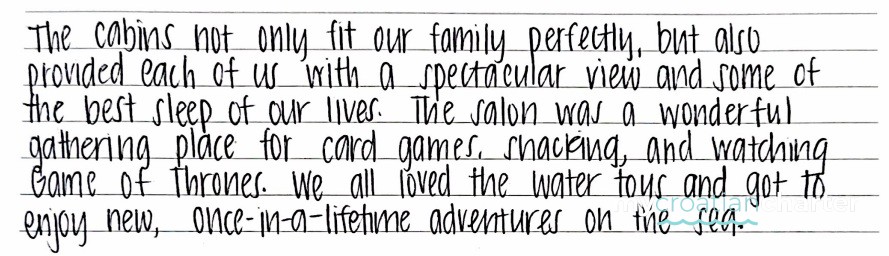 The cabins not only fit our family perfectly, but also
provided each of us with a spectacular view and some of
the best sleep of our lives. The salon was a wonderful
gathering place for card games, snacking, and watching
Game of Thrones. We all loved the water toys and got to
enjoy new, once-in-a-lifetime adventures on the sea.
my croatian charter